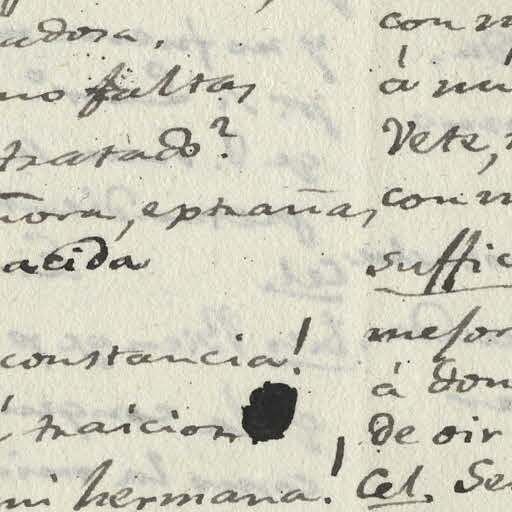 adora.
no faltas
tratado?
ñora, extraña,
acida
constancia!
traicion
mi hermana!
con m
á mi
Vete,
con m
suffic
mejor
á don
de oir
Cel. Se